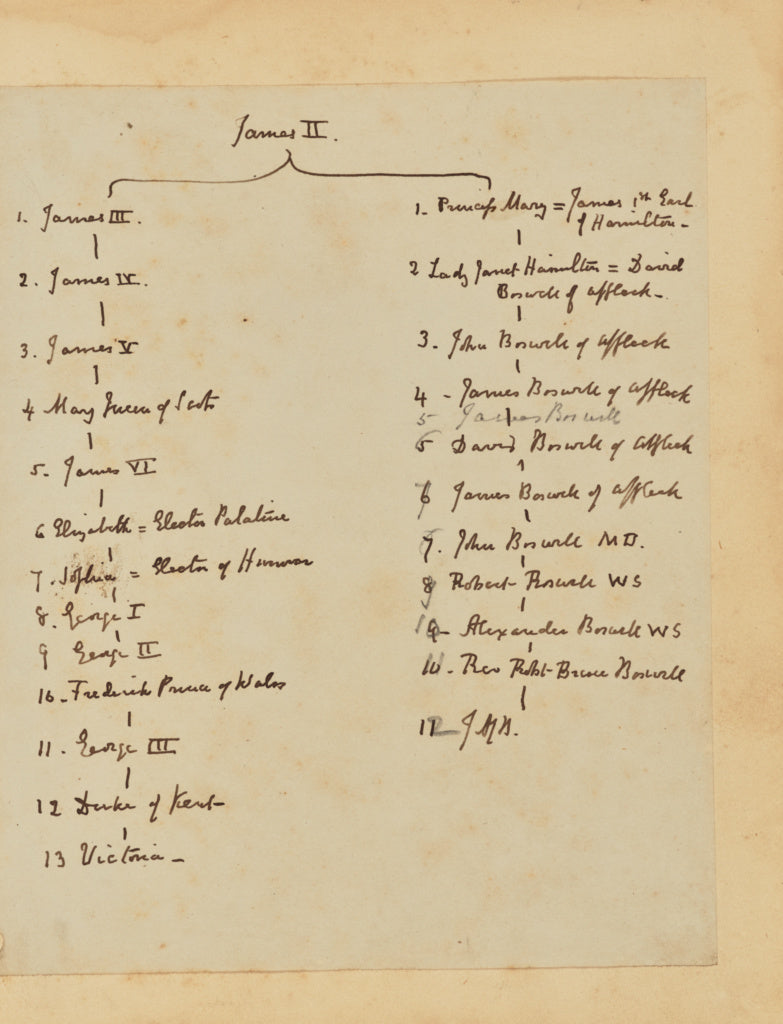 James II.
1. James III.
2. James IV.
3. James V
4 Mary Queen of Scots
5. James VI
6 Elizabeth = Elector Palatine
7. Sophia = Elector of Hanover
8. George I
9 George II
10. Frederick Prince of Wales
11. George III
12 Duke of Kent
13 Victoria -
1. Princess Mary = James 1st Earl
of Hamilton -
2 Lady Janet Hamilton = David
Boswell of Affleck -
3. John Boswell of Affleck
4 - James Boswell of Affleck
5 James Boswell
5 David Boswell of Affleck
6 James Boswell of Affleck
7. John Boswell MD.
8 Robert Boswell WS
9 - Alexander Boswell WS
10. Rev Robt Bruce Boswell
11